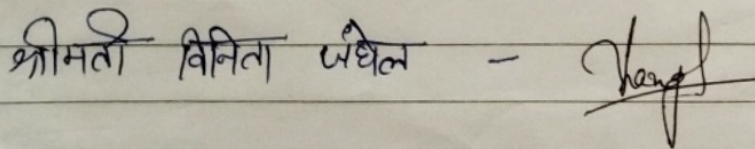 श्रीमती विनिता जंघेल -